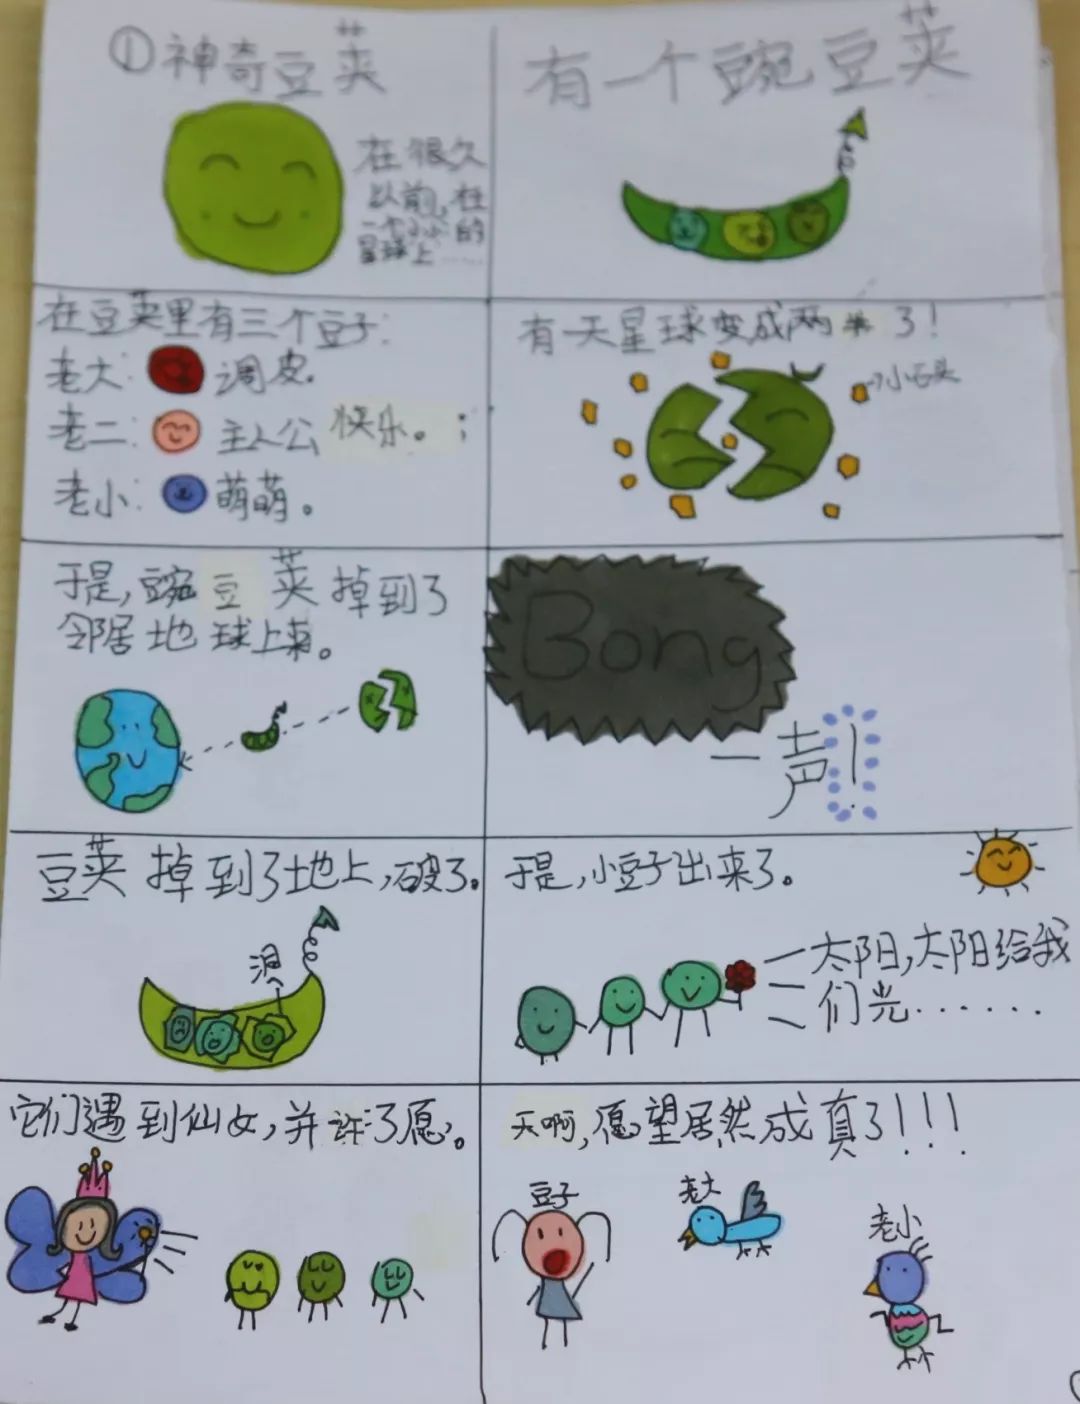 ①神奇豆荚
在很久
以前,在
一个小小的
星球上……
有一个豌豆荚
在豆荚里有三个豆子:
老大: 调皮.
老二: 主人公 快乐。;
老小: 萌萌。
有一天星球变成两半了!
小石头
于是,豌豆荚掉到了
邻居地球上来。
Bong
一声!
豆荚掉到了地上,破了。
洞
于是,小豆子出来了。
太阳,太阳给我
们光......
它们遇到仙女,并许了愿。
天啊,愿望居然成真了!!!
豆子
老大
老小